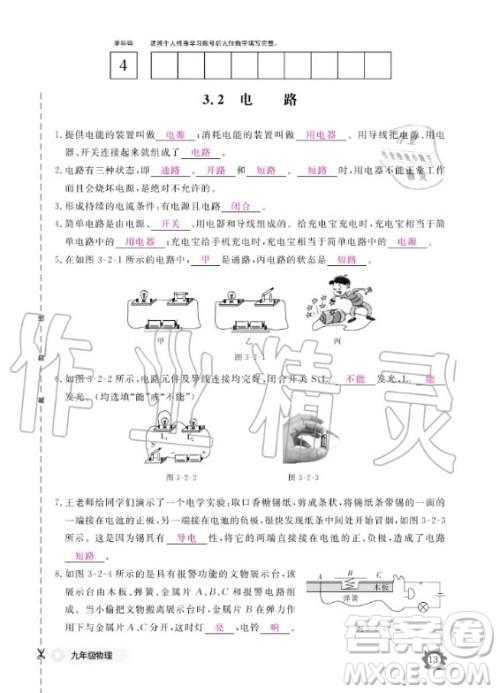 学科码 请将个人终身学习账号后九位数字填写完整。
4
3.2 电 路
1.提供电能的装置叫做 电源 ;消耗电能的装置叫做 用电器 。用导线把电源、用电
器、开关连接起来就组成了 电路 。
2.电路有三种状态,即 通路 、 开路 和 短路 。 短路 时,用电器不能正常工作
而且会烧坏电源,是绝对不允许的。
3.形成持续的电流条件:有电源且电路 闭合 。
4.简单电路是由电源、 开关 、用电器和导线组成的。给充电宝充电时,充电宝相当于简
单电路中的 用电器 ;充电宝给手机充电时,充电宝相当于简单电路中的 电源 。
5.在如图 3-2-1 所示的电路中, 甲 是通路,丙电路的状态是 短路 。
甲 乙 丙
图 3-2-1
6.如图 3-2-2 所示,电路元件及导线连接均完好,闭合开关 S:L₁ 不能 发光,L₂ 能
发光。(均选填“能”或“不能”)
L₁ L₂
S
图 3-2-2 图 3-2-3
7.王老师给同学们演示了一个电学实验:取口香糖锡纸,剪成条状,将此纸条带锡的一
端接在电池的正极,另一端接在电池的负极,发现纸条中间处开始燃烧,如图 3-2-3
所示。这是因为锡具有 导电 性,将它的两端直接接在电池的正、负极,造成了
短路 。
8.如图 3-2-4 所示的是具有报警功能的文物展示台,该
展示台由木板、弹簧、金属片 A、B 以及灯、电铃等组
成。当小偷把文物搬离展示台时,金属片 B 在弹簧的
作用下与金属片 A 接触,这时灯 亮 ,电铃 响 。
A B C
木板
弹簧
九年级物理
13
作业精灵